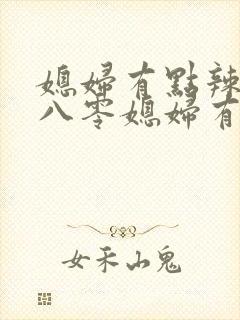 媳婦有點辣
八零媳婦有
女禾山鬼